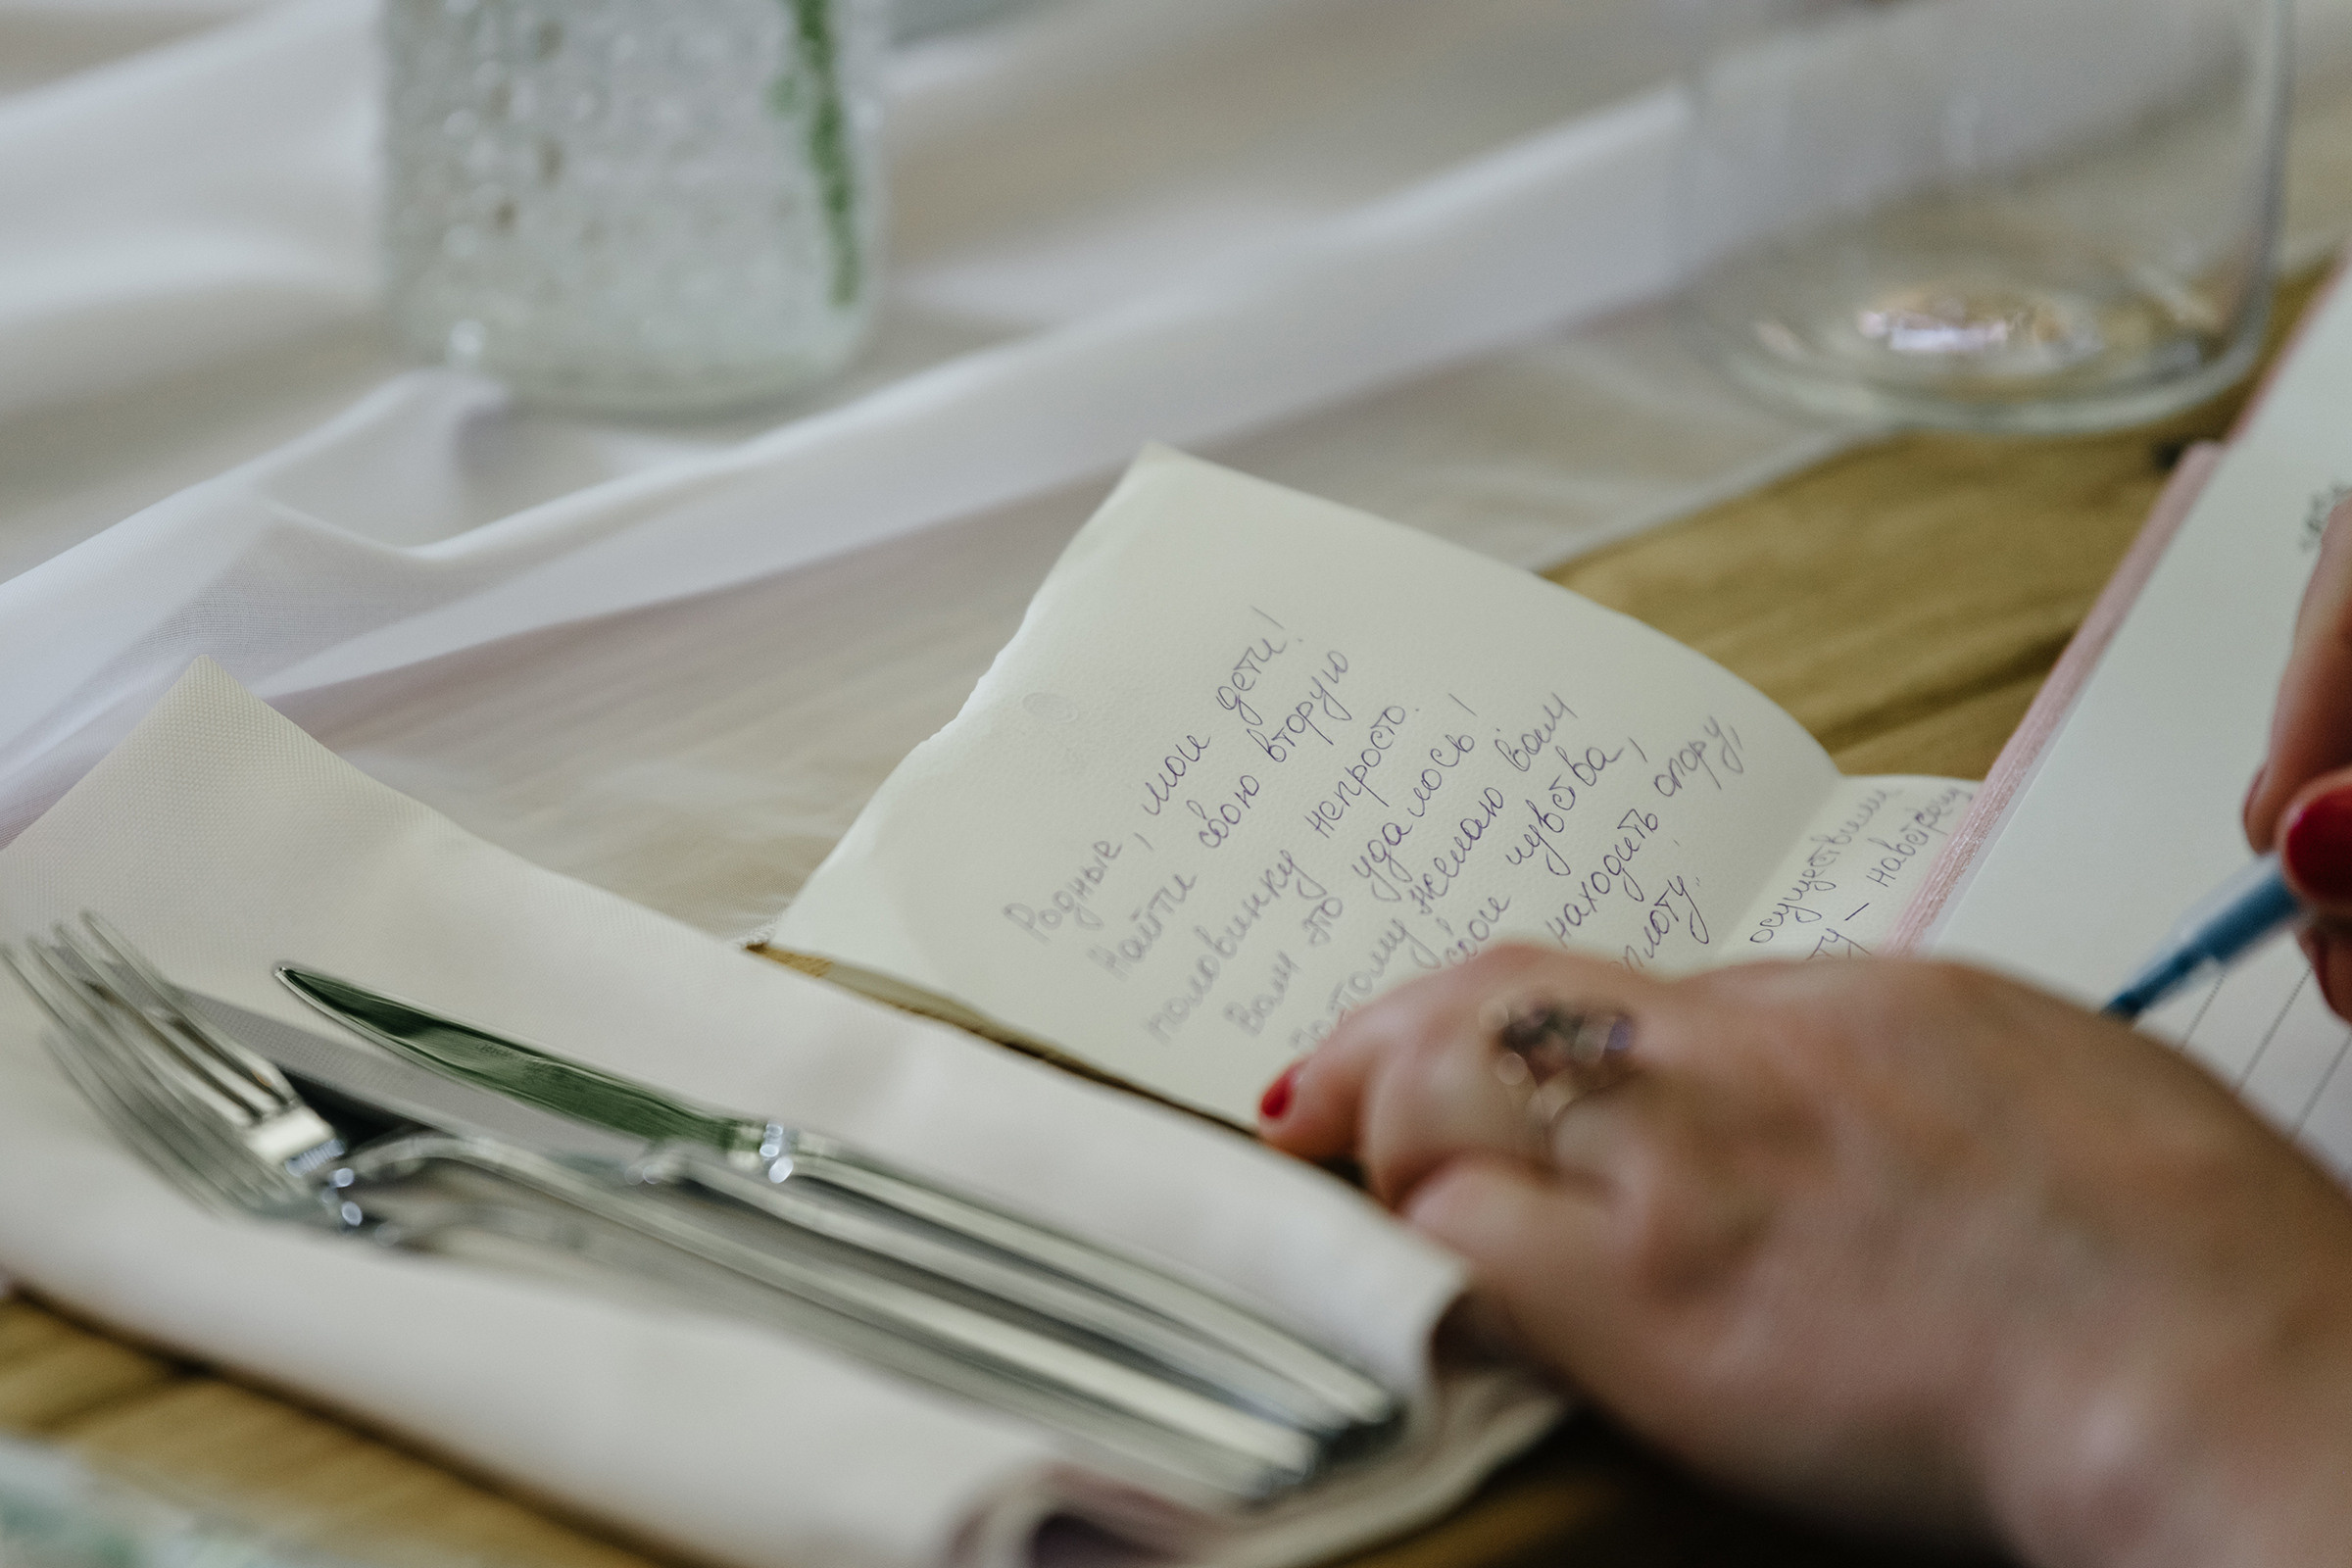 Родные, мои дети!
Найти свою вторую
половинку непросто.
Вам это удалось!
Поэтому желаю вам
свои чувства,
находить опору,
осуществили
— навстречу